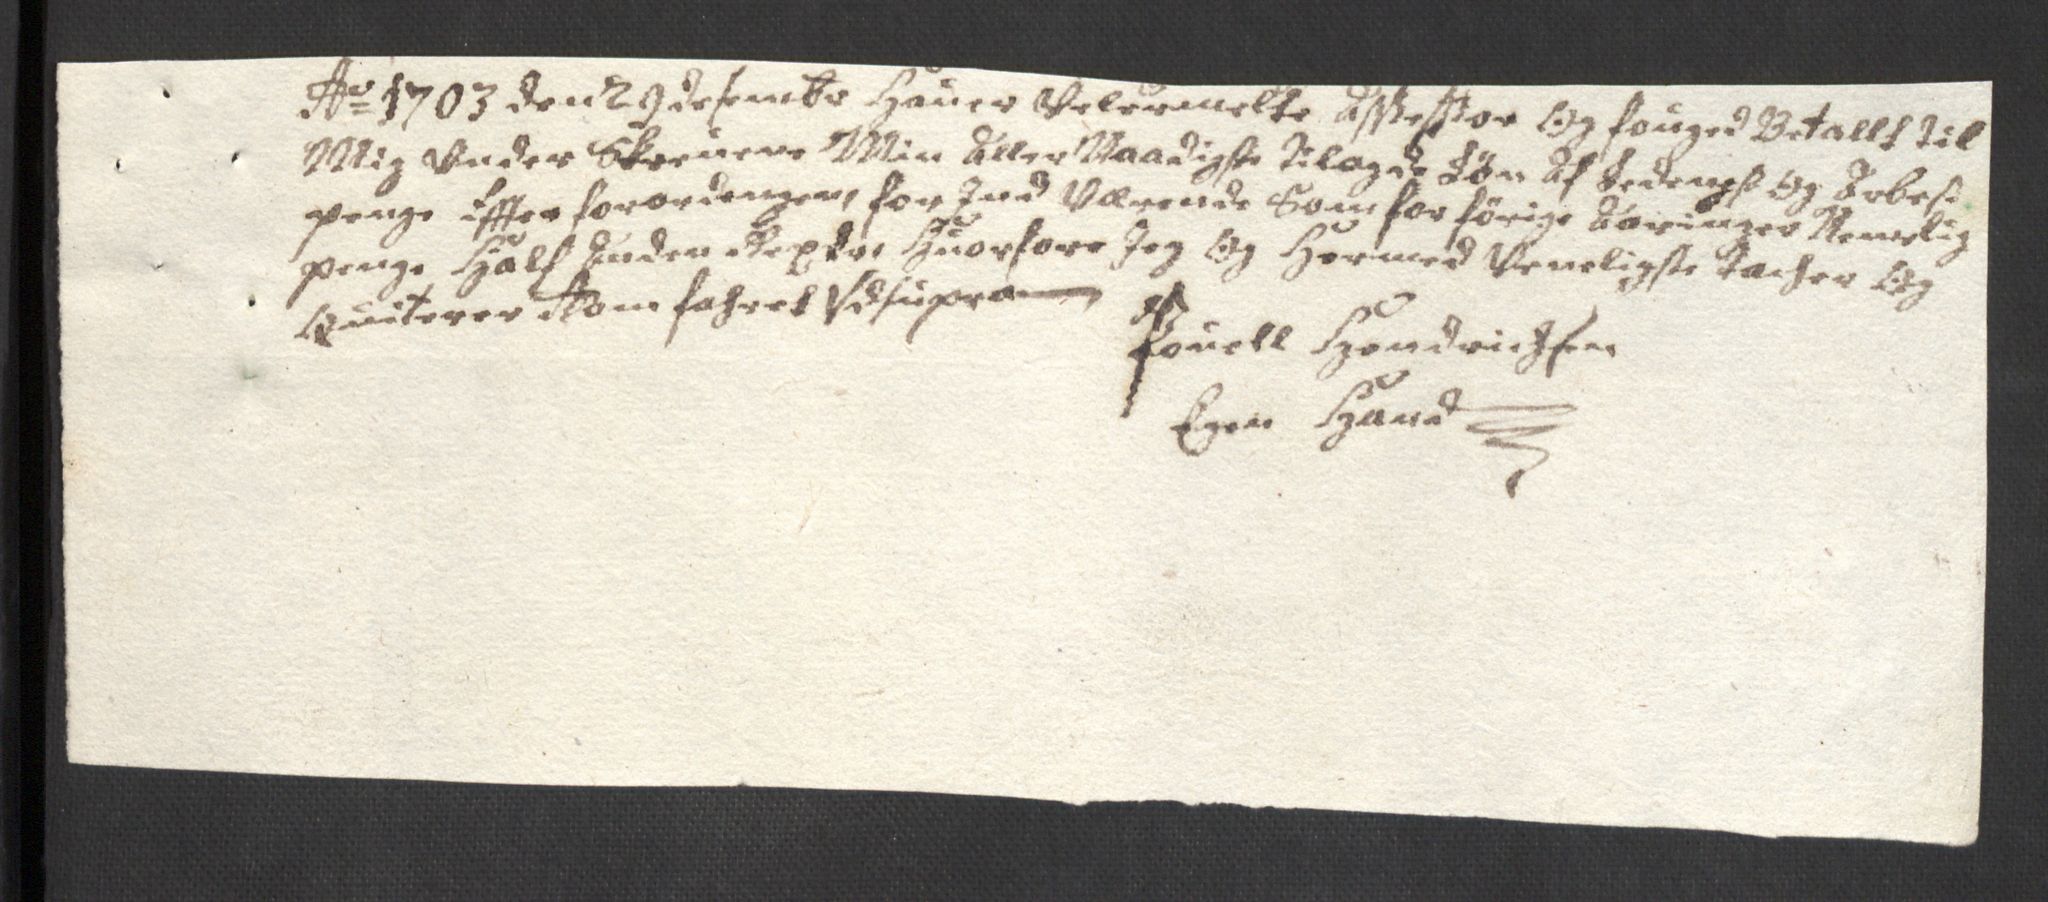 Ao 1703 den 29 desembr Hauer Velermelte Assessor Og fouged Betallt til
Mig Under Skreuene Min Aller Naadigste tilagde Lön Af Ledings Og Arbeds
penge Effter forordengen, for Ind Værende Som for förige Aaringer Nemelig
penge Half Anden Rixdr, Huorfore Jeg Og Hermed Veneligste tacher Og
Quiterer Kom sahret Vdsupra
Pouell Hendrichsen
Egen Hand